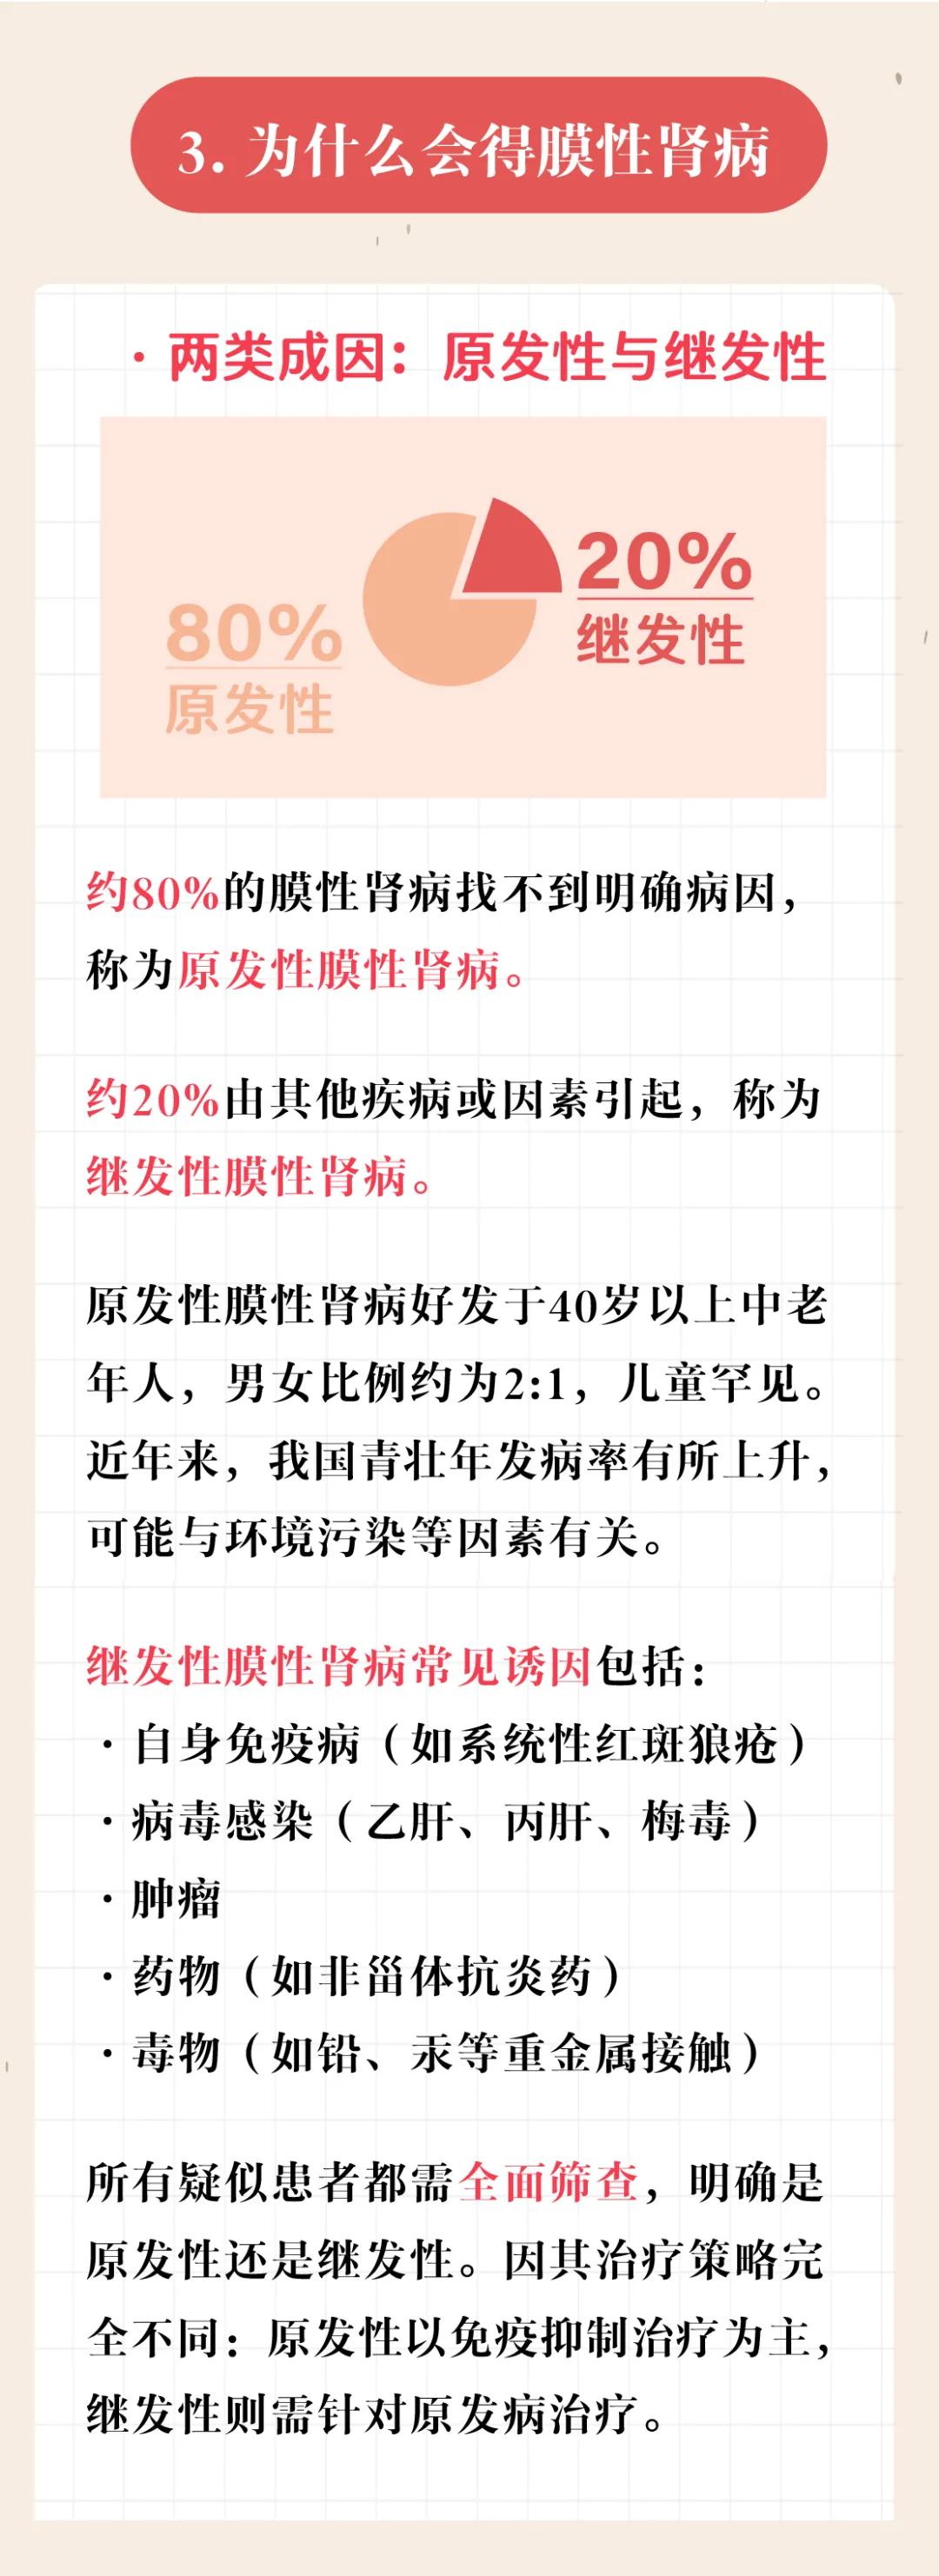 3. 为什么会得膜性肾病
· 两类成因：原发性与继发性
20%
继发性
80%
原发性
约80%的膜性肾病找不到明确病因，
称为原发性膜性肾病。
约20%由其他疾病或因素引起，称为
继发性膜性肾病。
原发性膜性肾病好发于40岁以上中老
年人，男女比例约为2:1，儿童罕见。
近年来，我国青壮年发病率有所上升，
可能与环境污染等因素有关。
继发性膜性肾病常见诱因包括：
· 自身免疫病（如系统性红斑狼疮）
· 病毒感染（乙肝、丙肝、梅毒）
· 肿瘤
· 药物（如非甾体抗炎药）
· 毒物（如铅、汞等重金属接触）
所有疑似患者都需全面筛查，明确是
原发性还是继发性。因其治疗策略完
全不同：原发性以免疫抑制治疗为主，
继发性则需针对原发病治疗。